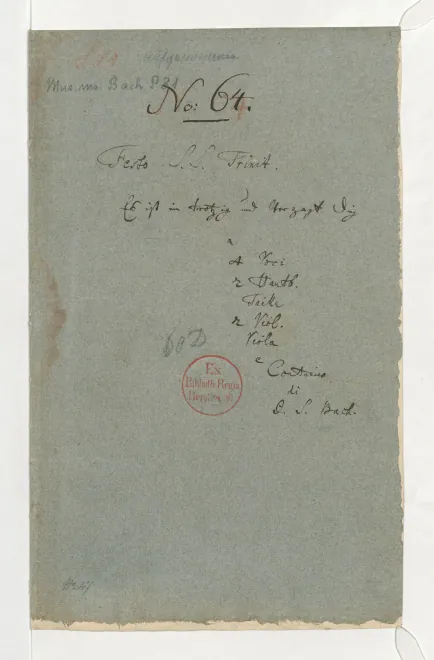 Mus. ms. Bach P 81
No: 64.
Festo S. S. Trinit.
Es ist ein trotzig und verzagt Ding
a
4 Voci
2 Hautb.
Taille
2 Viol.
Viola
e
Continuo
di
J. S. Bach.
Ex
Biblioth. Regia
Berolinensi.